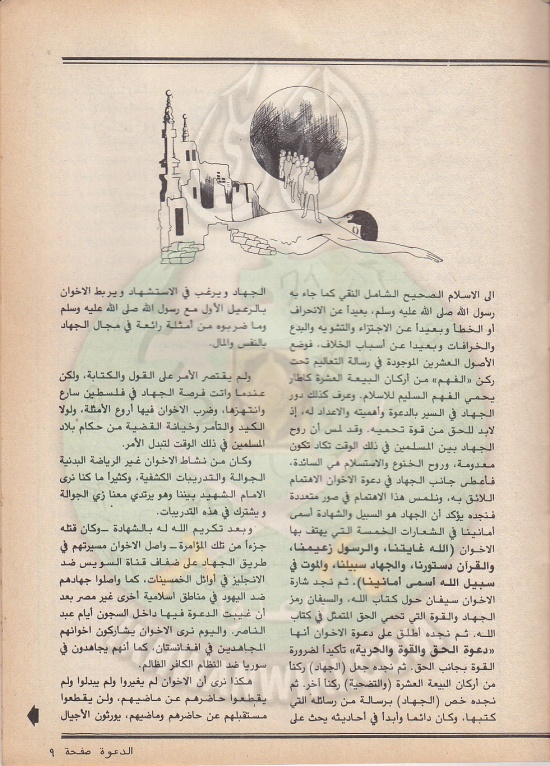 الى الاسلام الصحيح الشامل النقي كما جاء به
رسول الله صلى الله عليه وسلم، بعيداً عن الانحراف
أو الخطأ وبعيداً عن الاجتزاء والتشويه والبدع
والخرافات وبعيداً عن أسباب الخلاف، فوضع
الأصول العشرين الموجودة في رسالة التعاليم تحت
ركن «الفهم» من أركان البيعة العشرة كاطار
يحمي الفهم السليم للاسلام. وعرف كذلك دور
الجهاد في السير بالدعوة وأهميته والاعداد له، إذ
لابد للحق من قوة تحميه. وقد لمس أن روح
الجهاد بين المسلمين في ذلك الوقت تكاد تكون
معدومة، وروح الخنوع والاستسلام هي السائدة،
فأعطى جانب الجهاد في دعوة الاخوان الاهتمام
اللائق به، ونلمس هذا الاهتمام في صور متعددة
فنجده يؤكد أن الجهاد هو السبيل والشهادة أسمى
أمانينا في الشعارات الخمسة التي يهتف بها
الاخوان (الله غايتنا، والرسول زعيمنا،
والقرآن دستورنا، والجهاد سبيلنا، والموت في
سبيل الله اسمى أمانينا). ثم نجد شارة
الاخوان سيفان حول كتاب الله، والسيفان رمز
الجهاد والقوة التي تحمي الحق المتمثل في كتاب
الله. ثم نجده أطلق على دعوة الاخوان أنها
«دعوة الحق والقوة والحرية» تأكيداً لضرورة
القوة بجانب الحق. ثم نجده جعل (الجهاد) ركناً
من أركان البيعة العشرة (والتضحية) ركناً آخر. ثم
نجده خص (الجهاد) برسالة من رسائله التي
كتبها، وكان دائما وأبداً في أحاديثه يحث على
الجهاد ويرغب في الاستشهاد ويربط الاخوان
بالرعيل الأول مع رسول الله صلى الله عليه وسلم
وما ضربوه من أمثلة رائعة في مجال الجهاد
بالنفس والمال.
ولم يقتصر الأمر على القول والكتابة، ولكن
عندما واتت فرصة الجهاد في فلسطين سارع
وانتهزها، وضرب الاخوان فيها أروع الأمثلة، ولولا
الكيد والتآمر وخيانة القضية من حكام بلاد
المسلمين في ذلك الوقت لتبدل الأمر.
وكان من نشاط الاخوان غير الرياضة البدنية
الجوالة والتدريبات الكشفية، وكثيراً ما كنا نرى
الامام الشهيد بيننا وهو يرتدي معنا زي الجوالة
ويشترك في هذه التدريبات.
وبعد تكريم الله له بالشهادة ــ وكان قتله
جزءاً من تلك المؤامرة ــ واصل الاخوان مسيرتهم في
طريق الجهاد على ضفاف قناة السويس ضد
الانجليز في أوائل الخمسينات، كما واصلوا جهادهم
ضد اليهود في مناطق اسلامية أخرى غير مصر بعد
أن غيبت الدعوة فيها داخل السجون أيام عبد
الناصر. واليوم نرى الاخوان يشاركون اخوانهم
المجاهدين في افغانستان، كما أنهم يجاهدون في
سوريا ضد النظام الكافر الظالم.
هكذا نرى أن الاخوان لم يغيروا ولم يبدلوا ولم
يقطعوا حاضرهم عن ماضيهم، ولن يقطعوا
مستقبلهم عن حاضرهم وماضيهم، يورثون الأجيال
الدعوة صفحة ٩